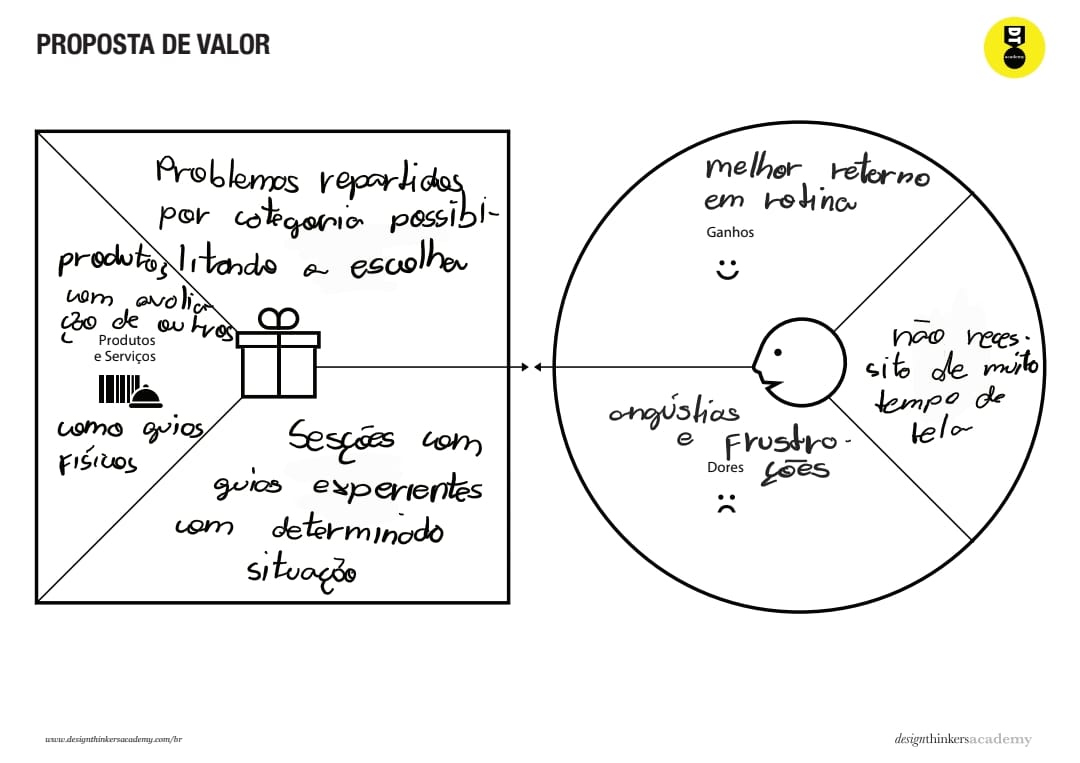 PROPOSTA DE VALOR
DT
academy
Problemas repartidos
por categoria possibi-
litando a escolher
produtos
com avalia
ção de outros
Produtos
e Serviços
como guias
Físicos
Sesções com
guias experientes
com determinado
situação
melhor retorno
em rotina
Ganhos
não neces-
sito de muito
tempo de
tela
angústias
e Frustra-
ções
Dores
www.designthinkersacademy.com/br
designthinkersacademy